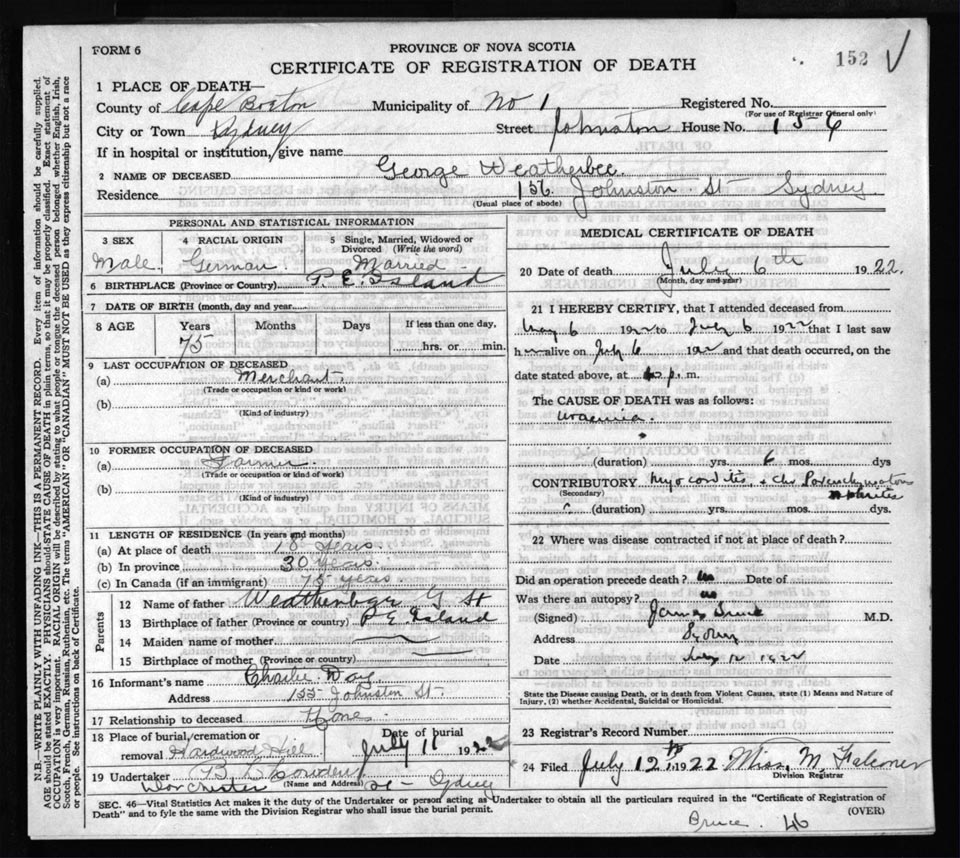 FORM 6
PROVINCE OF NOVA SCOTIA
CERTIFICATE OF REGISTRATION OF DEATH
152 √
1 PLACE OF DEATH—
County of Cape Breton Municipality of No 1 Registered No.
(For use of Registrar General only)
City or Town Sydney Street Johnston House No. 156
If in hospital or institution, give name
2 NAME OF DECEASED George Weatherbee
Residence 156 Johnston St Sydney
(Usual place of abode)
PERSONAL AND STATISTICAL INFORMATION
3 SEX 4 RACIAL ORIGIN 5 Single, Married, Widowed or Divorced (Write the word)
Male German Married
6 BIRTHPLACE (Province or Country) P. E. Island
7 DATE OF BIRTH (month, day and year)
8 AGE Years Months Days If less than one day,
75 hrs. or min.
9 LAST OCCUPATION OF DECEASED
(a) Merchant
(Trade or occupation or kind or work)
(b)
(Kind of industry)
10 FORMER OCCUPATION OF DECEASED
(a) Farmer
(Trade or occupation or kind of work)
(b)
(Kind of industry)
11 LENGTH OF RESIDENCE (In years and months)
(a) At place of death 18 years
(b) In province 30 years
(c) In Canada (if an immigrant) 75 years
Parents
12 Name of father G St
13 Birthplace of father (Province or country) P E Island
14 Maiden name of mother
15 Birthplace of mother (Province or country)
16 Informant's name Charlie
Address 155 Johnston St
17 Relationship to deceased None
18 Place of burial, cremation or removal Hardwood Hill Date of burial July 11 1922
19 Undertaker
(Name and Address)
Dorchester St Sydney
MEDICAL CERTIFICATE OF DEATH
20 Date of death July 6th 1922.
(Month, day and year)
21 I HEREBY CERTIFY, that I attended deceased from
May 6 1922 to July 6 1922 that I last saw
h alive on July 6 192 and that death occurred, on the
date stated above, at p. m.
The CAUSE OF DEATH was as follows:
uraemia
(duration) yrs. mos. dys
CONTRIBUTORY myocarditis + chr Parenchymatous
(Secondary) nephritis
(duration) yrs. mos. dys.
22 Where was disease contracted if not at place of death?
Did an operation precede death? no Date of
Was there an autopsy? no
(Signed) James M.D.
Address Sydney
Date July 12 1922
State the Disease causing Death, or in death from Violent Causes, state (1) Means and Nature of
Injury, (2) whether Accidental, Suicidal or Homicidal.
23 Registrar's Record Number
24 Filed July 12th 1922 Miss M. Falconer
Division Registrar
SEC. 46—Vital Statistics Act makes it the duty of the Undertaker or person acting as Undertaker to obtain all the particulars required in the "Certificate of Registration of
Death" and to fyle the same with the Division Registrar who shall issue the burial permit.
(OVER)
Bruce. 46
N.B.—WRITE PLAINLY WITH UNFADING INK—THIS IS A PERMANENT RECORD. Every item of information should be carefully supplied.
AGE should be stated EXACTLY. PHYSICIANS should STATE CAUSE OF DEATH in plain terms, so that it may be properly classified. Exact statement of
OCCUPATION is very important. RACIAL ORIGIN will be described by stating to what people or tongue the deceased person belonged whether English, Irish,
Scotch, French, German, Russian, Ruthenian, etc. The terms "AMERICAN" OR "CANADIAN" MUST NOT BE USED as they express citizenship but not a race
or people. See instructions on back of Certificate.